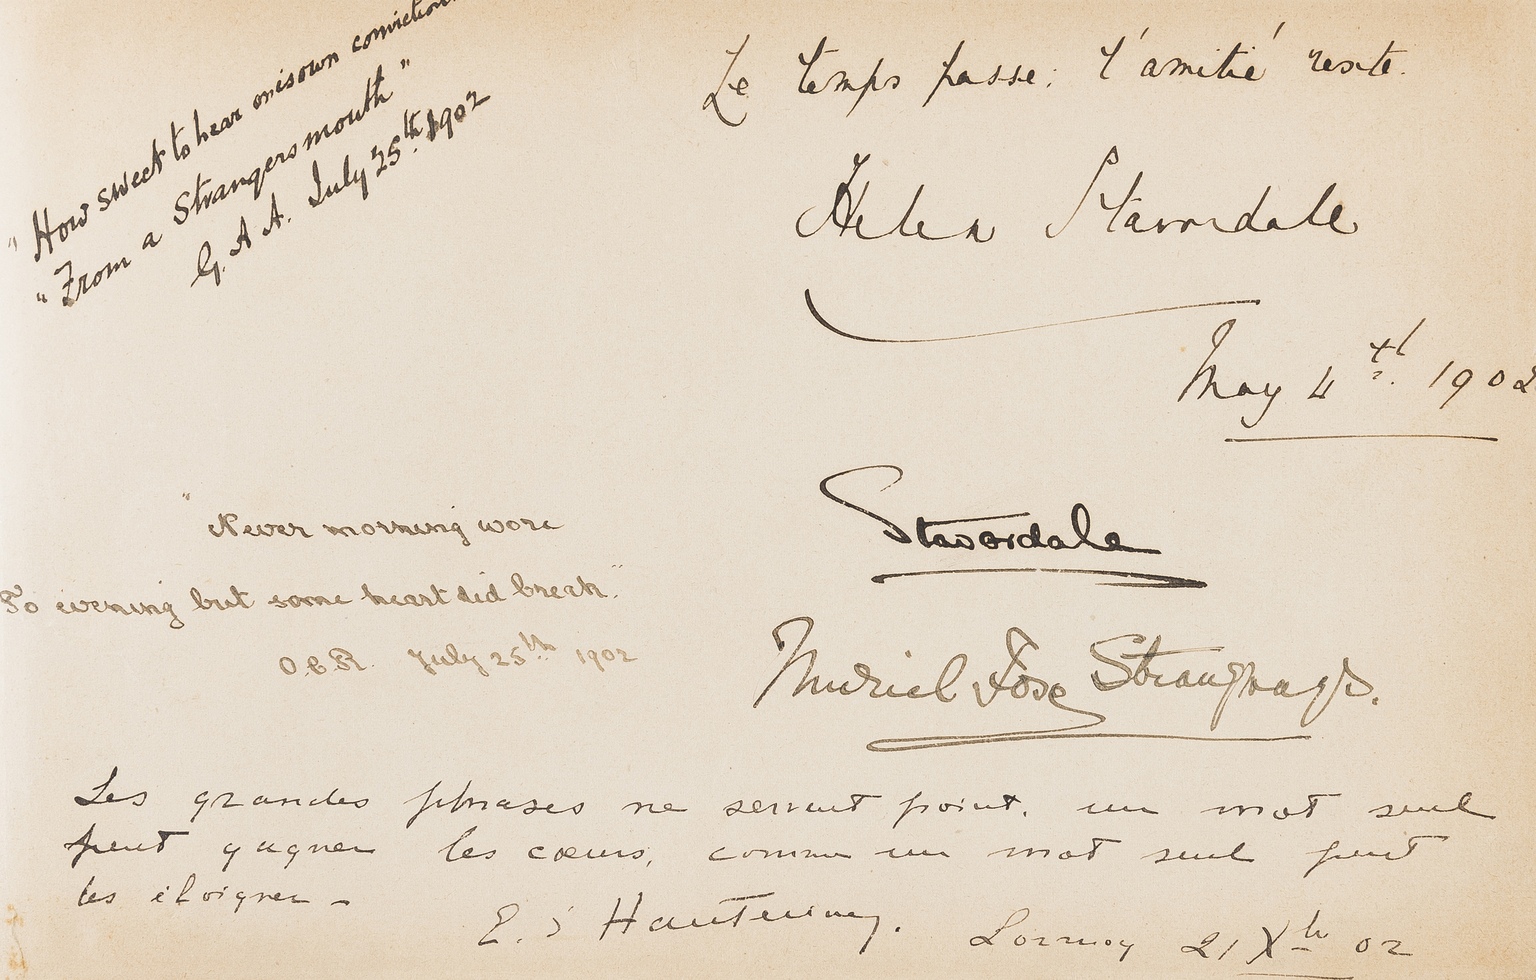 "How sweet to hear onisown conviction
"From a Strangers mouth"
G. A A. July 25th. 1902
Le temps passe; l'amitié reste.
Helen Stavordale
May 4th. 1902
Stavordale
Muriel Fox Strangways.
"Never morning wore
To evening but some heart did break."
O.C.R. July 25th 1902
Les grandes phrases ne servent point. un mot seul
peut gagner les cœurs, comme un mot seul peut
les éloigner -
E. d'
21 Xbr 02